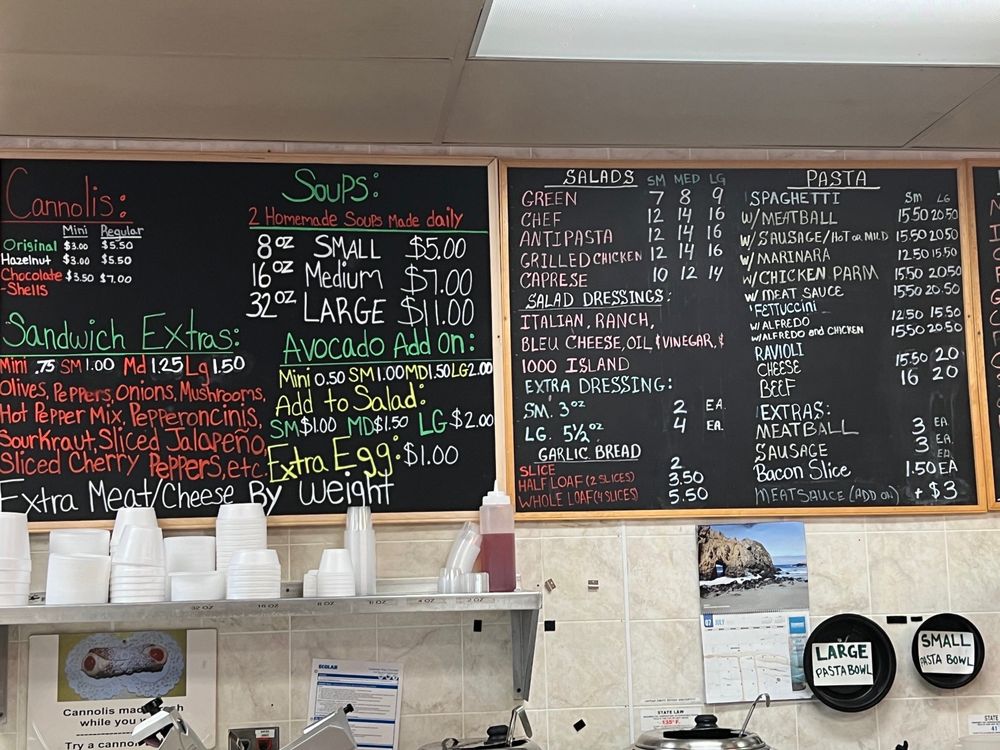 Cannolis:
Mini Regular
Original $3.00 $5.50
Hazelnut $3.00 $5.50
Chocolate $3.50 $7.00
-Shells
Soups:
2 Homemade Soups Made daily
8oz SMALL $5.00
16oz Medium $7.00
32oz LARGE $11.00
Sandwich Extras:
Mini .75 SM 1.00 Md 1.25 Lg 1.50
Olives, Peppers, Onions, Mushrooms,
Hot Pepper Mix, Pepperoncinis,
Sourkraut, Sliced Jalapeño,
Sliced Cherry Peppers, etc.
Avocado Add On:
Mini 0.50 SM 1.00 MD 1.50 LG 2.00
Add to Salad:
SM $1.00 MD $1.50 LG $2.00
Extra Egg: $1.00
Extra Meat/Cheese By Weight
SALADS SM MED LG
GREEN 7 8 9
CHEF 12 14 16
ANTIPASTA 12 14 16
GRILLED CHICKEN 12 14 16
CAPRESE 10 12 14
SALAD DRESSINGS:
ITALIAN, RANCH,
BLEU CHEESE, OIL & VINEGAR, &
1000 ISLAND
EXTRA DRESSING:
SM. 3oz 2 EA.
LG. 5½oz 4 EA.
GARLIC BREAD
SLICE 2
HALF LOAF (2 SLICES) 3.50
WHOLE LOAF (4 SLICES) 5.50
PASTA
SPAGHETTI Sm LG
W/MEATBALL 15.50 20.50
W/SAUSAGE/HOT OR MILD 15.50 20.50
W/MARINARA 12.50 15.50
W/CHICKEN PARM 15.50 20.50
W/MEAT SAUCE 15.50 20.50
FETTUCCINI
W/ALFREDO 12.50 15.50
W/ALFREDO and CHICKEN 15.50 20.50
RAVIOLI
CHEESE 15.50 20
BEEF 16 20
EXTRAS:
MEATBALL 3 EA.
SAUSAGE 3 EA
Bacon Slice 1.50 EA
MEAT SAUCE (ADD ON) + $3
32 OZ 16 OZ 8 OZ 4 OZ 2 OZ
07 JULY
LARGE
PASTA BOWL
SMALL
PASTA BOWL
Cannolis made fresh
while you
Try a cannol
ECOLAB
STATE LAW
135°F
STATE